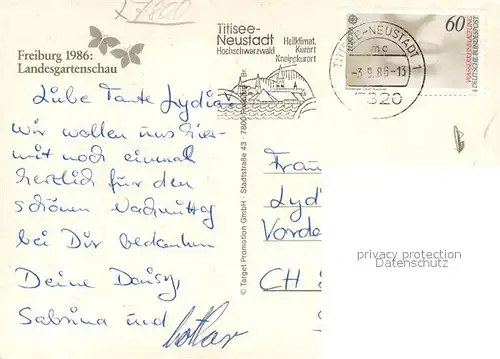 Z7800
Freiburg 1986:
Landesgartenschau
Titisee-
Neustadt
Hochschwarzwald
Heilklimat.
Kurort
Kneippkurort
TITISEE-NEUSTADT 1
mc
-3.9.86-13
7820
60
EUROPA
WASSERREINHALTUNG
DEUTSCHE BUNDESPOST
Liebe Tante Lydia!
Wir wollen uns hier-
mit noch einmal
herzlich für den
schönen Nachmittag
bei Dir bedanken
Deine Daisy,
Sabrina und Lothar
© Target Promotion GmbH · Stadtstraße 43 · 7800 Freiburg i. Br.
Frau
Lydi
Vorde
CH
privacy protection
Datenschutz